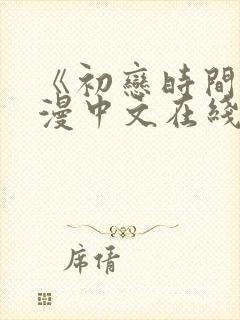 《初戀時間
漫中文在綫
席倩